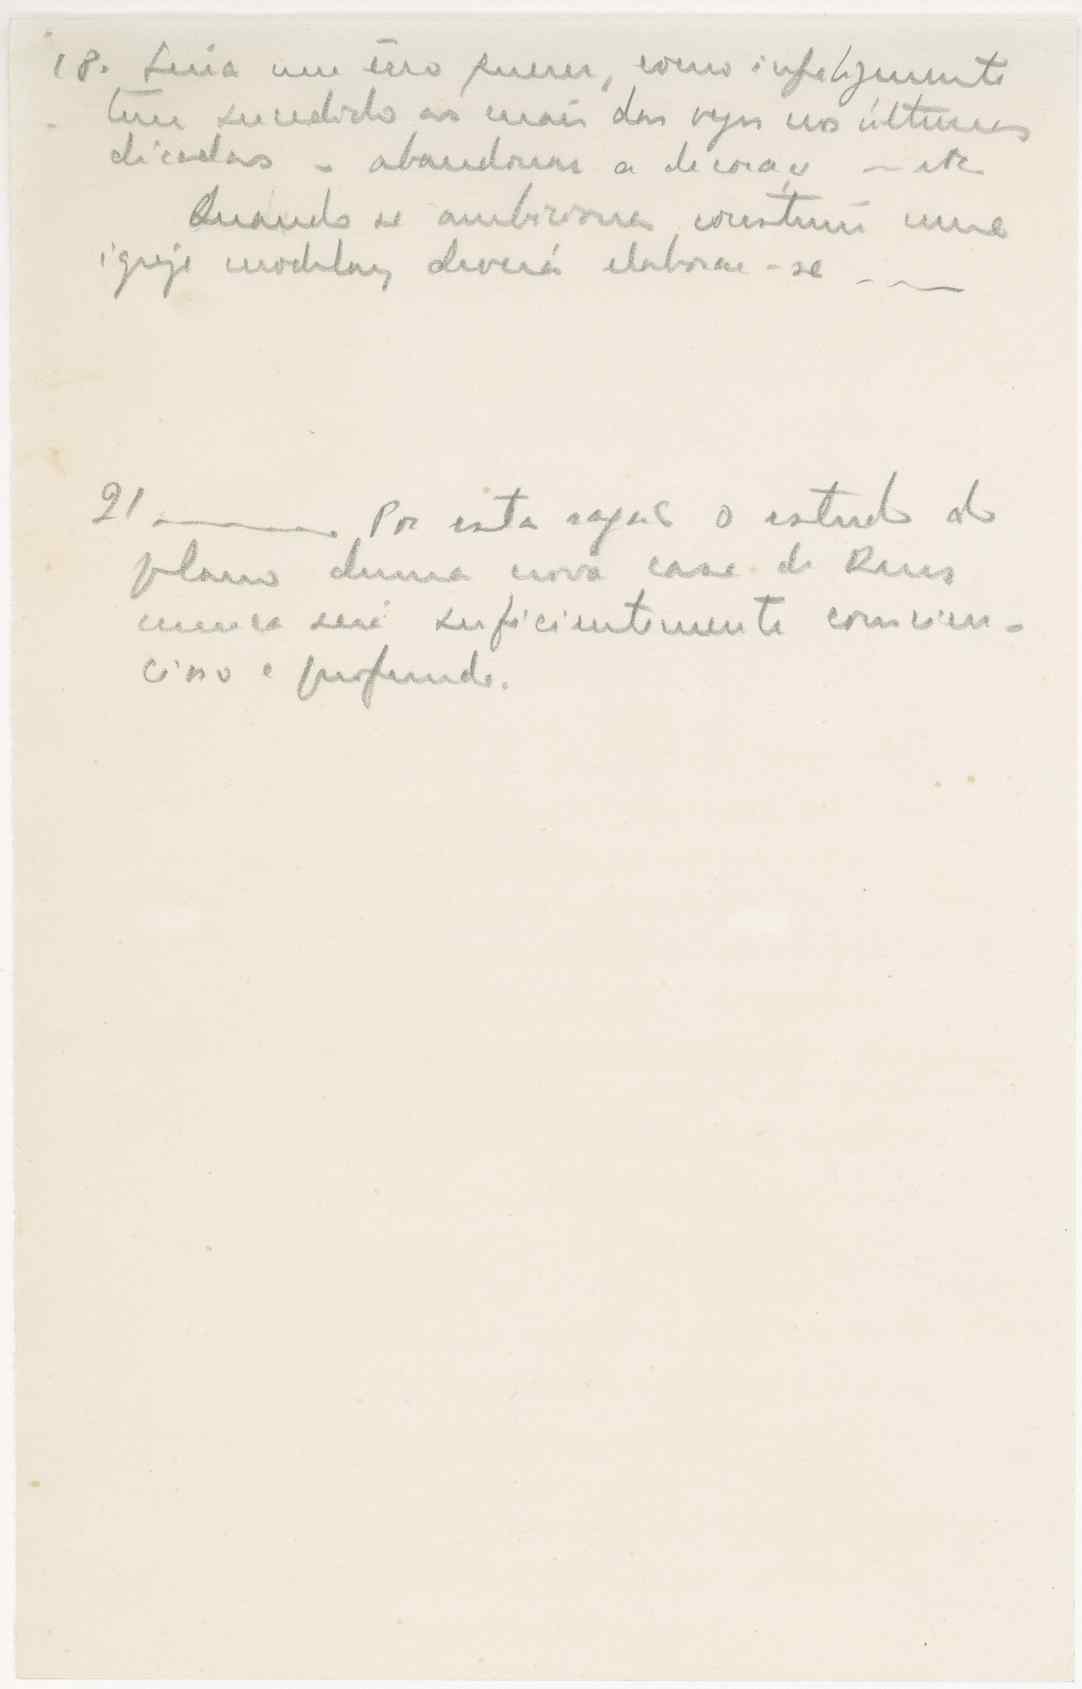 18. Seria um êrro querer, como infelizmente
tem sucedido as mais das vezes nos últimos
décadas - abandonar a decoração — etc
Quando se ambiciona construir uma
igreja modelar, deverá elaborar-se ———
21 ———. Por esta razão o estudo do
plano duma nova casa de Deus
nunca será suficientemente conscien-
cioso e profundo.